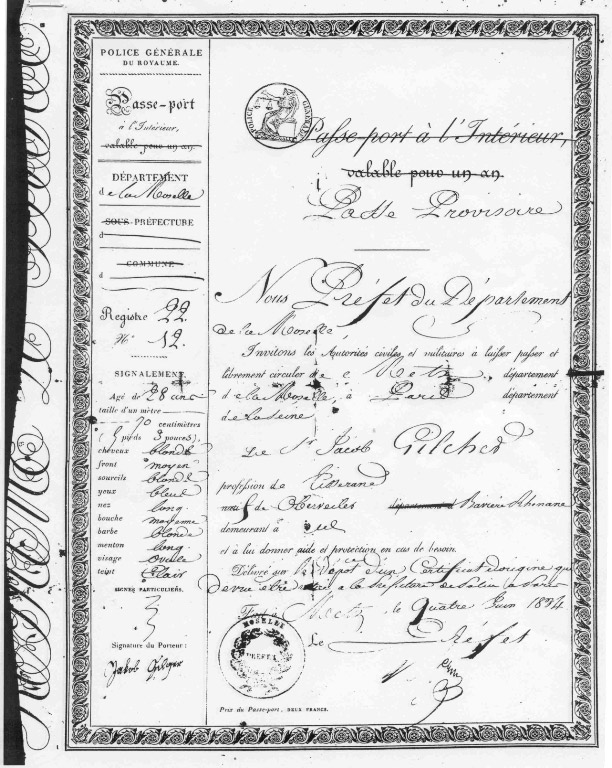 POLICE GÉNÉRALE
DU ROYAUME.
Passe-port
à l'Intérieur,
valable pour un an.
DÉPARTEMENT
de la Moselle
SOUS-PRÉFECTURE
d
COMMUNE
d
Registre 22
N.° 12.
SIGNALEMENT.
Agé de 28 ans
taille d'un mètre
70 centimètres
(5 pieds 3 pouces).
cheveux blonds
front moyen
sourcils blonds
yeux bleus
nez long
bouche moyenne
barbe blonde
menton long
visage ovale
teint clair
SIGNES PARTICULIERS.
Signature du Porteur:
Jakob Gilger
POLICE GÉNÉRALE
Passe-port à l'Intérieur,
valable pour un an.
Passe Provisoire
Nous Préfet du Département
de la Moselle
Invitons les Autorités civiles et militaires à laisser passer et
librement circuler de Metz département
de la Moselle à Paris département
de la Seine
Le Sr. Jacob Gilcher
profession de Tisserand
natif de département d Bavière Rhénane
demeurant à
et à lui donner aide et protection en cas de besoin.
Délivré sur le dépôt d'un Certificat d'origine qui
devra être à la Préfecture de Police à Paris
Fait à Metz le quatre Juin 1834
Le Préfet
MOSELLE
PRÉFET
Prix du Passe-port, DEUX FRANCS.